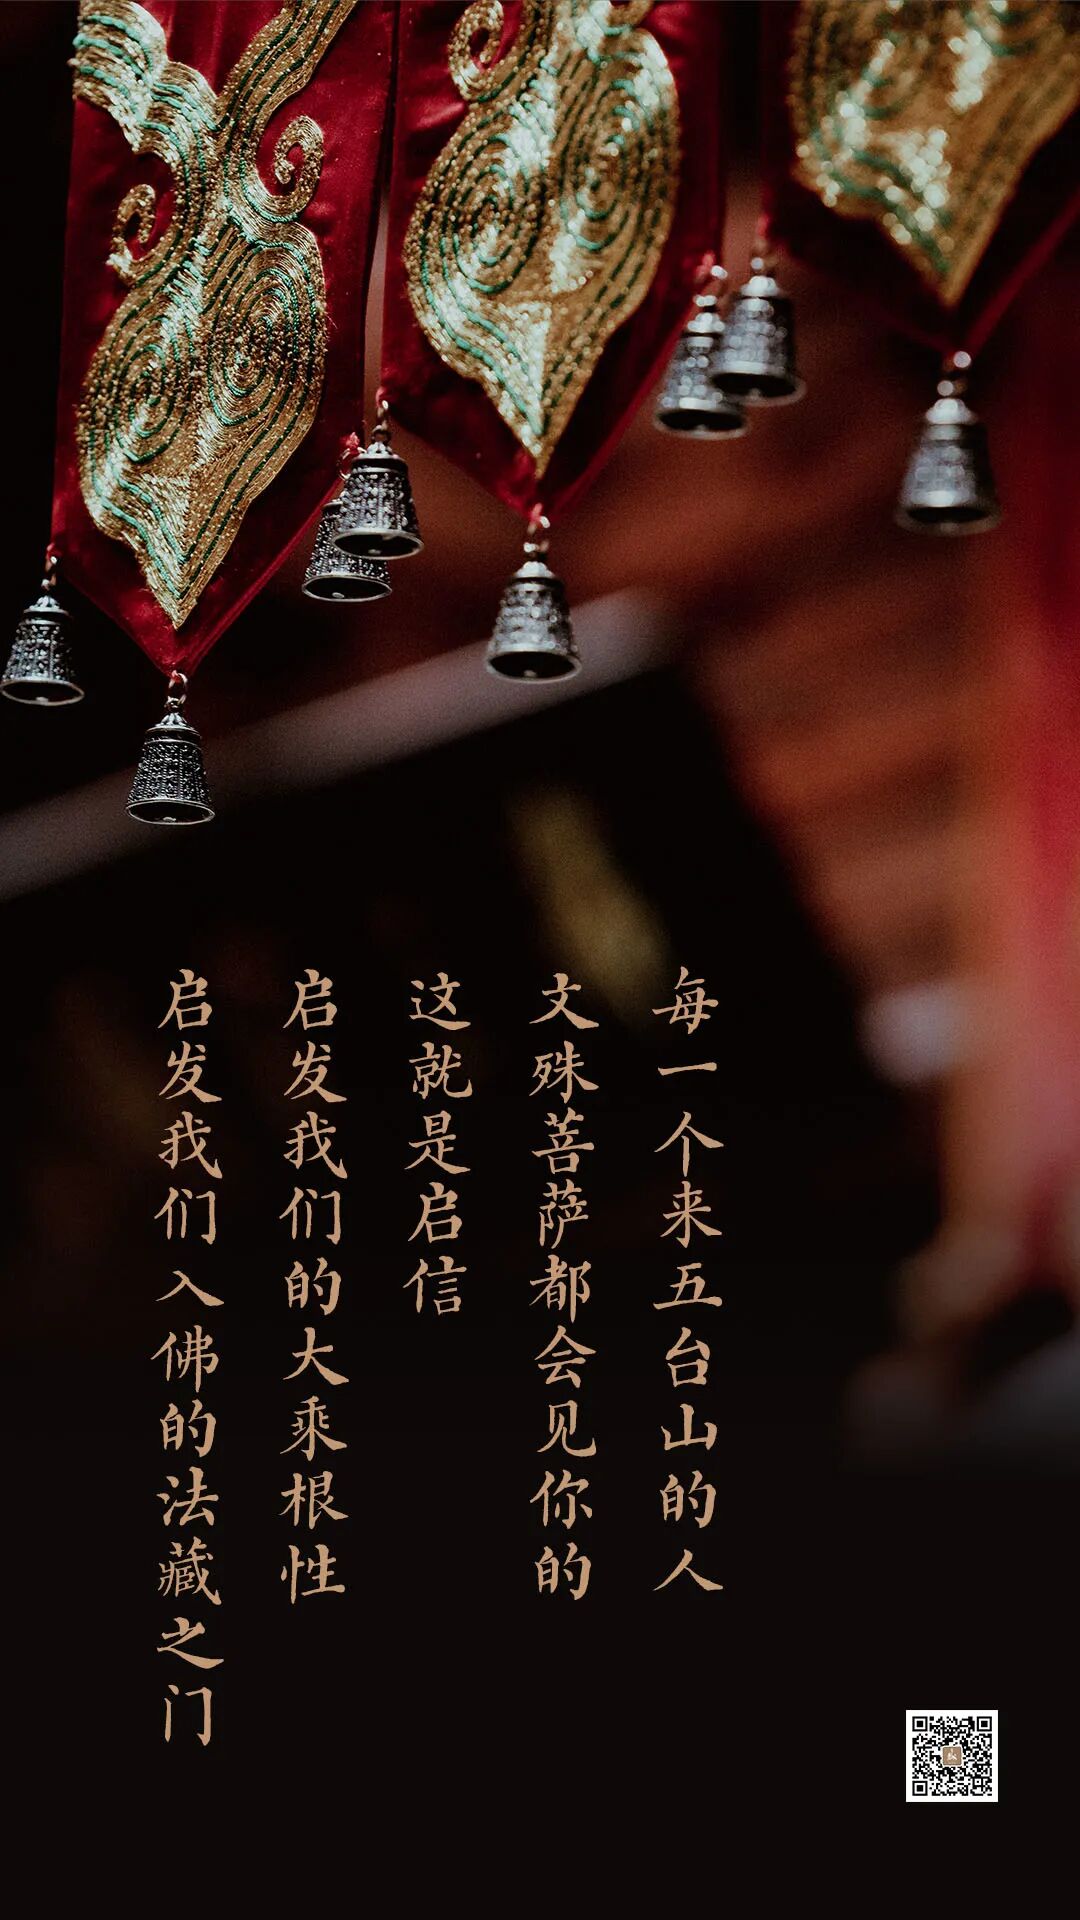 每一个来五台山的人
文殊菩萨都会见你的
这就是启信
启发我们的大乘根性
启发我们入佛的法藏之门